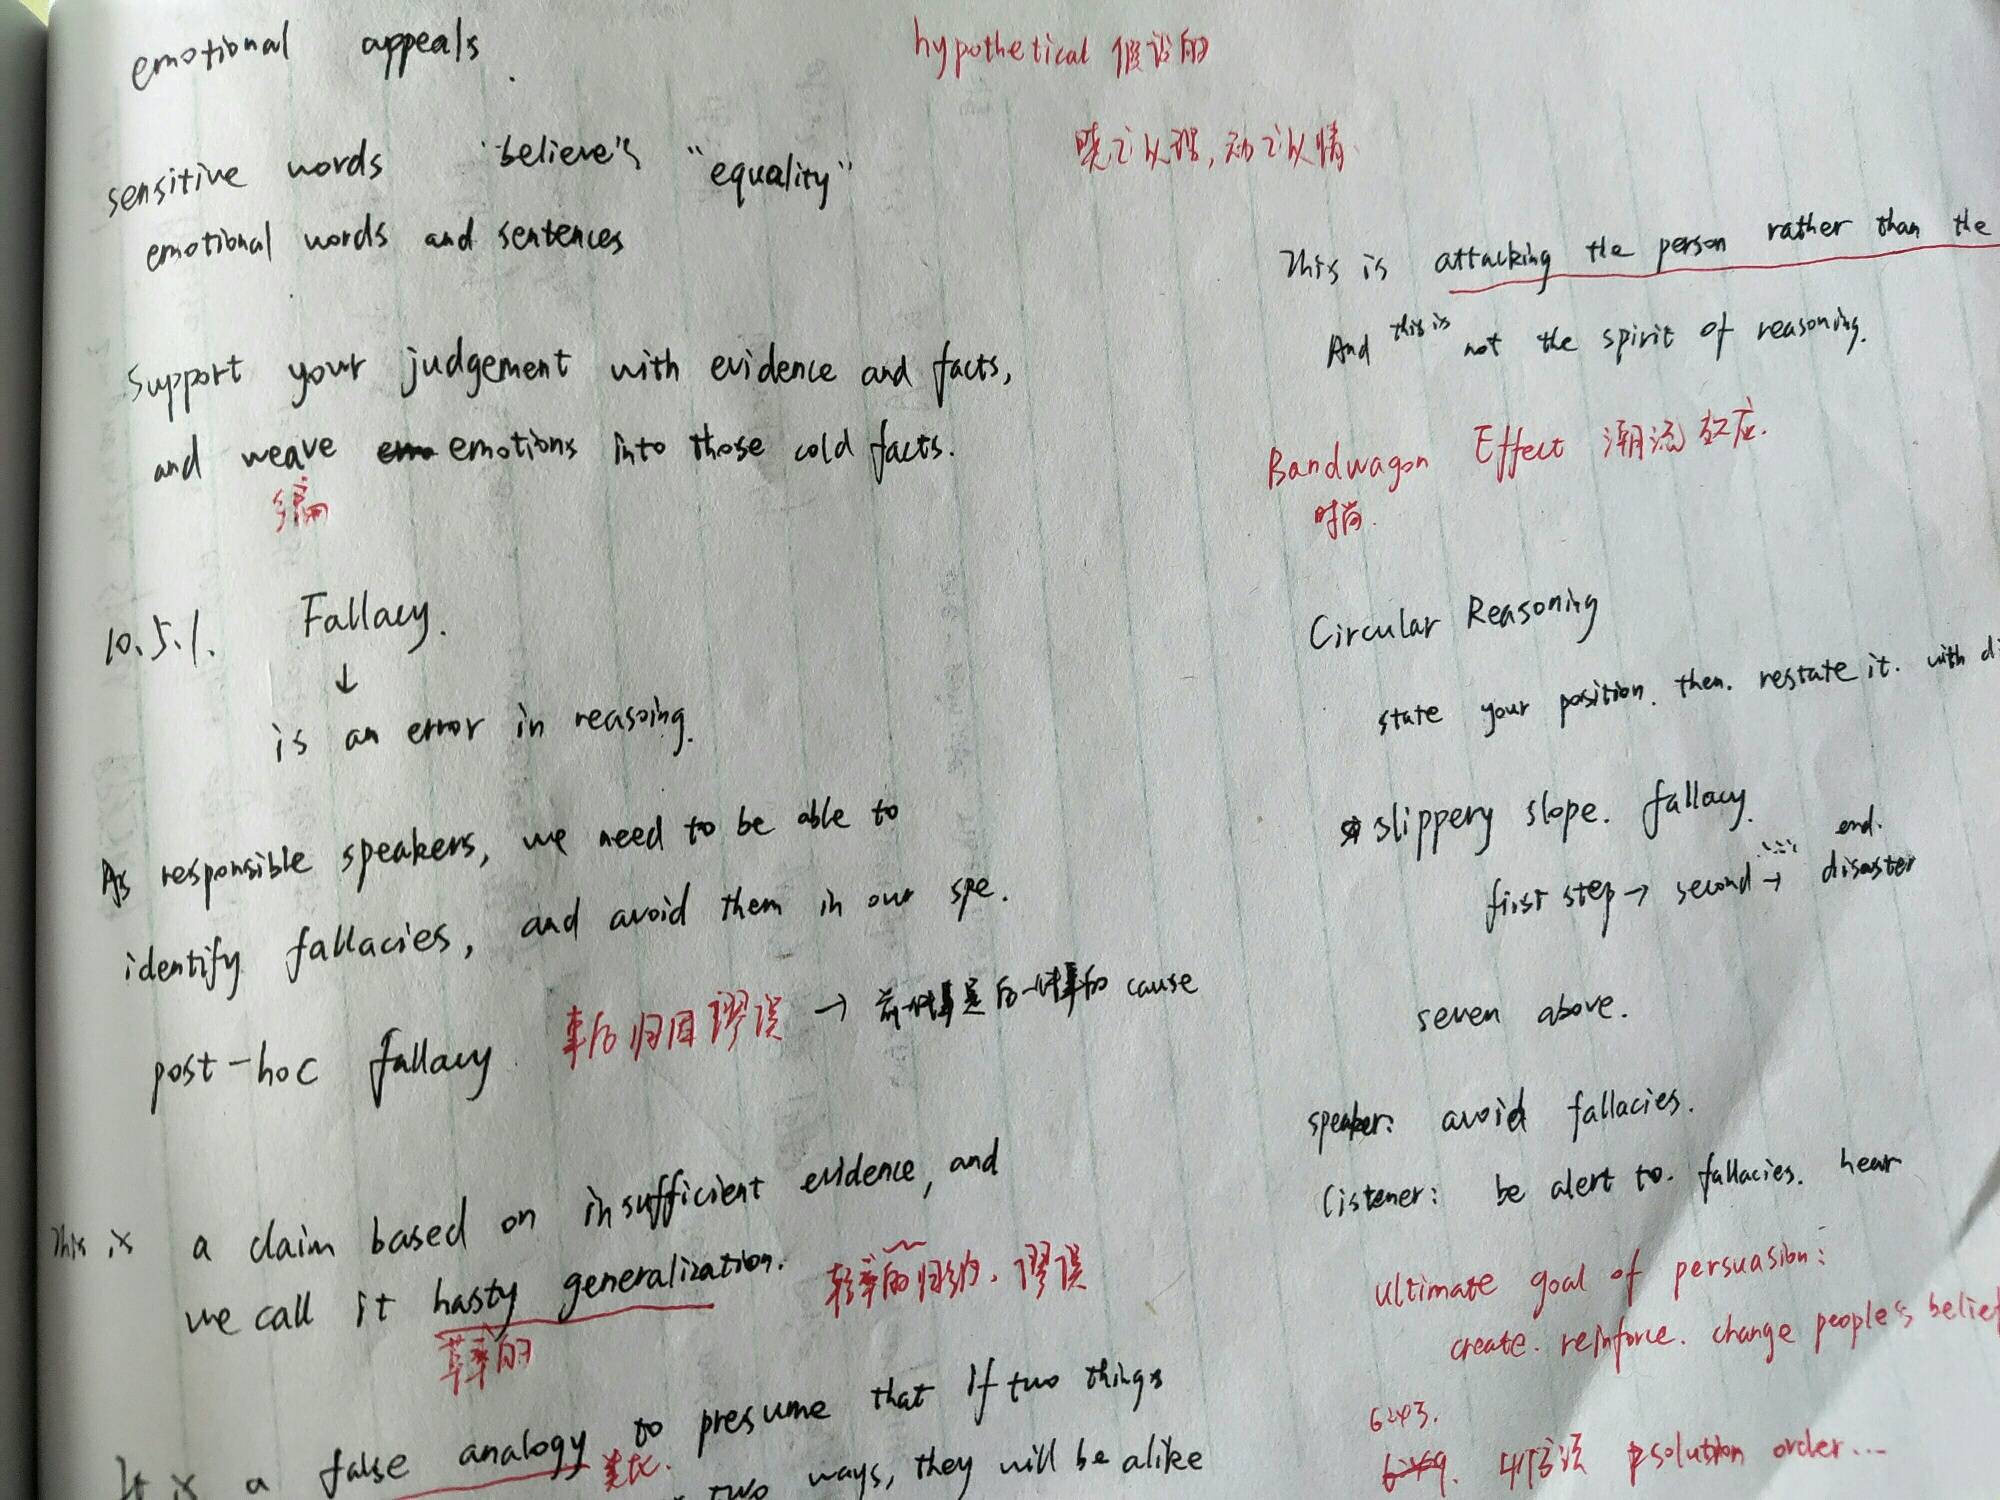 emotional appeals.
hypothetical 假设的
晓之以理,动之以情.
sensitive words "believe's "equality"
emotional words and sentences
Support your judgement with evidence and facts,
and weave emotions into those cold facts.
编
10.5.1. Fallacy.
↓
is an error in reasoing.
As responsible speakers, we need to be able to
identify fallacies, and avoid them in our spe.
post-hoc fallacy. 事后归因谬误 → 前一件事是后一件事的 cause
This is a claim based on insufficient evidence, and
we call it hasty generalization. 轻率的归纳. 谬误
草率的
It is a false analogy to presume that if two things
类比.
two ways, they will be alike
This is attacking the person rather than the
And this is not the spirit of reasoning.
Bandwagon Effect 潮流效应.
时尚.
Circular Reasoning
state your position. then. restate it. with di
slippery slope. fallacy.
end.
first step → second → ...... disaster
seven above.
speaker: avoid fallacies.
Listener: be alert to. fallacies. hear
ultimate goal of persuasion:
create. reinforce. change people's belief
6243.
solution order...